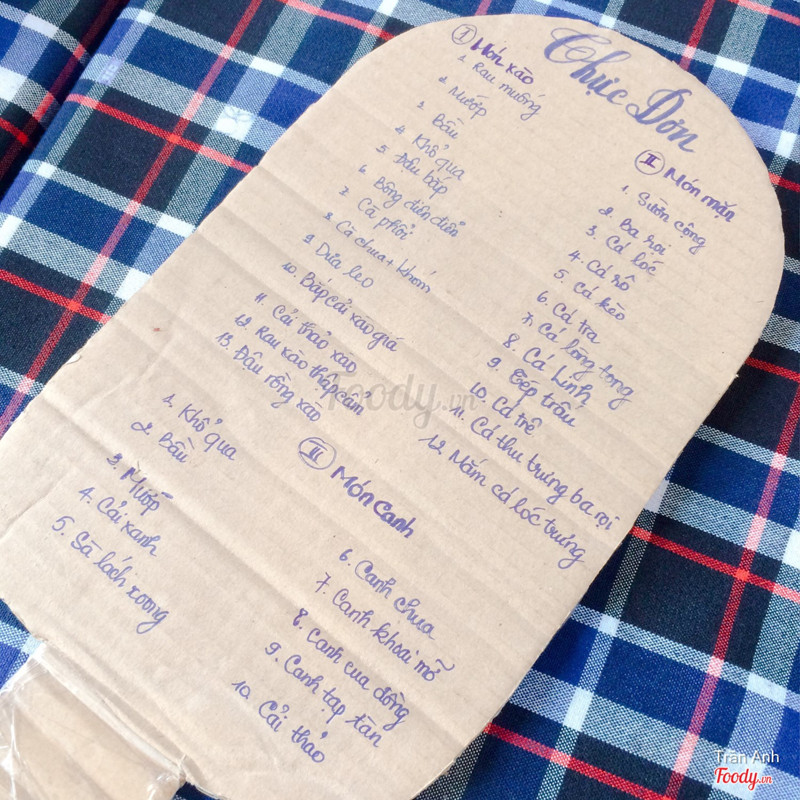 Thực Đơn
I Món xào
1. Rau muống
2. Mướp
3. Bầu
4. Khổ qua
5. Đậu bắp
6. Bông điên điển
7. Cà phổi
8. Cà chua + khóm
9. Dưa leo
10. Bắp cải xào giá
11. Cải thảo xào
12. Rau xào thập cẩm
13. Đậu rồng xào
II Món mặn
1. Sườn cộng
2. Ba rọi
3. Cá lóc
4. Cá rô
5. Cá kèo
6. Cá tra
7. Cá lòng tong
8. Cá linh
9. Tép trấu
10. Cá trê
11. Cá thu trưng ba rọi
12. Nắm cá lóc trưng
II Món canh
1. Khổ qua
2. Bầu
3. Mướp
4. Cải xanh
5. Sà lách xoong
6. Canh chua
7. Canh khoai mỡ
8. Canh cua đồng
9. Canh tạp tàn
10. Cải thảo
Foody.vn
Tran Anh
Foody.vn